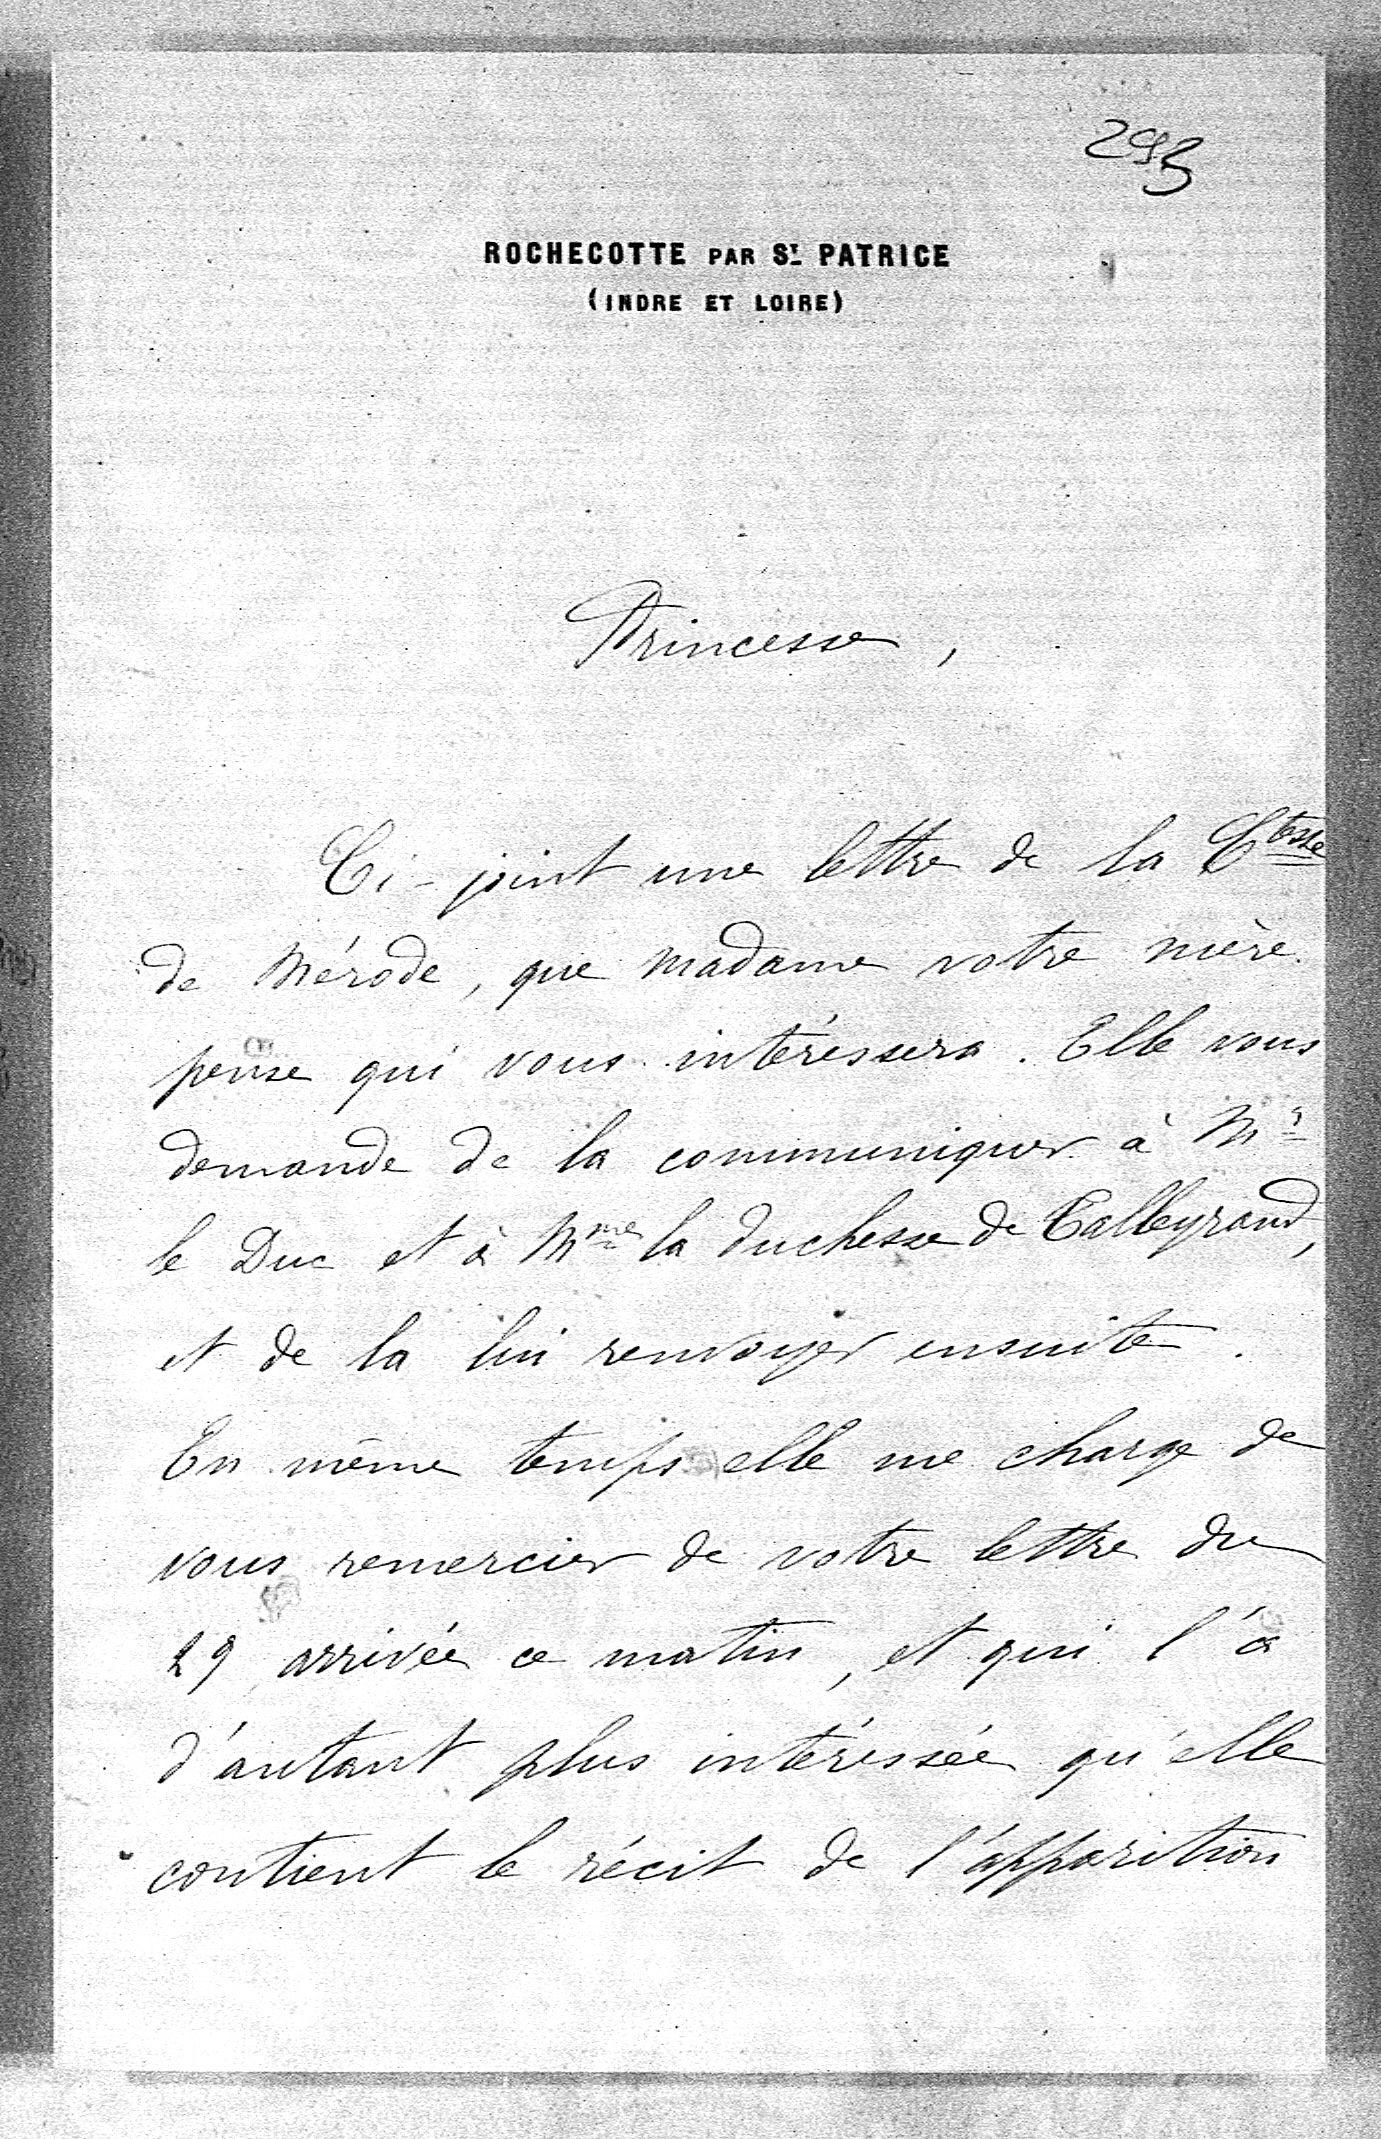 293
ROCHECOTTE PAR ST PATRICE
(INDRE ET LOIRE)
Princesse,
Ci-joint une lettre de la Ctesse
de Mérode, que madame votre mère
pense qui vous intéressera. Elle vous
demande de la communiquer à Mr
le Duc et à Mme la duchesse de Talleyrand,
et de la lui renvoyer ensuite.
En même temps elle me charge de
vous remercier de votre lettre du
29 arrivée ce matin, et qui l'a
d'autant plus intéressée qu'elle
contient le récit de l'apparition